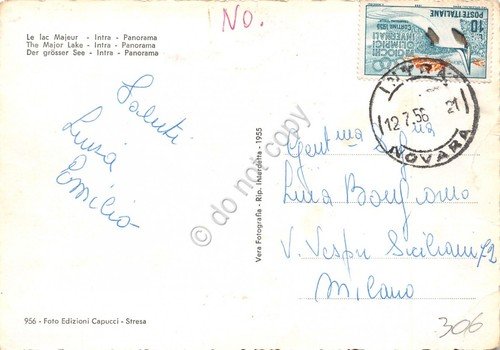 No.
Le lac Majeur - Intra - Panorama
The Major Lake - Intra - Panorama
Der grösser See - Intra - Panorama
Saluti
Luisa
Emilio
956 - Foto Edizioni Capucci - Stresa
Vera Fotografia - Rip. Interdetta - 1955
© do not copy
10
POSTE ITALIANE
GIOCHI OLIMPICI
INVERNALI
CORTINA 1956
INTRA
12.7.56
21
NOVARA
Gent ma Sig na
Luisa
V. Vespri Siciliani 72
Milano
306